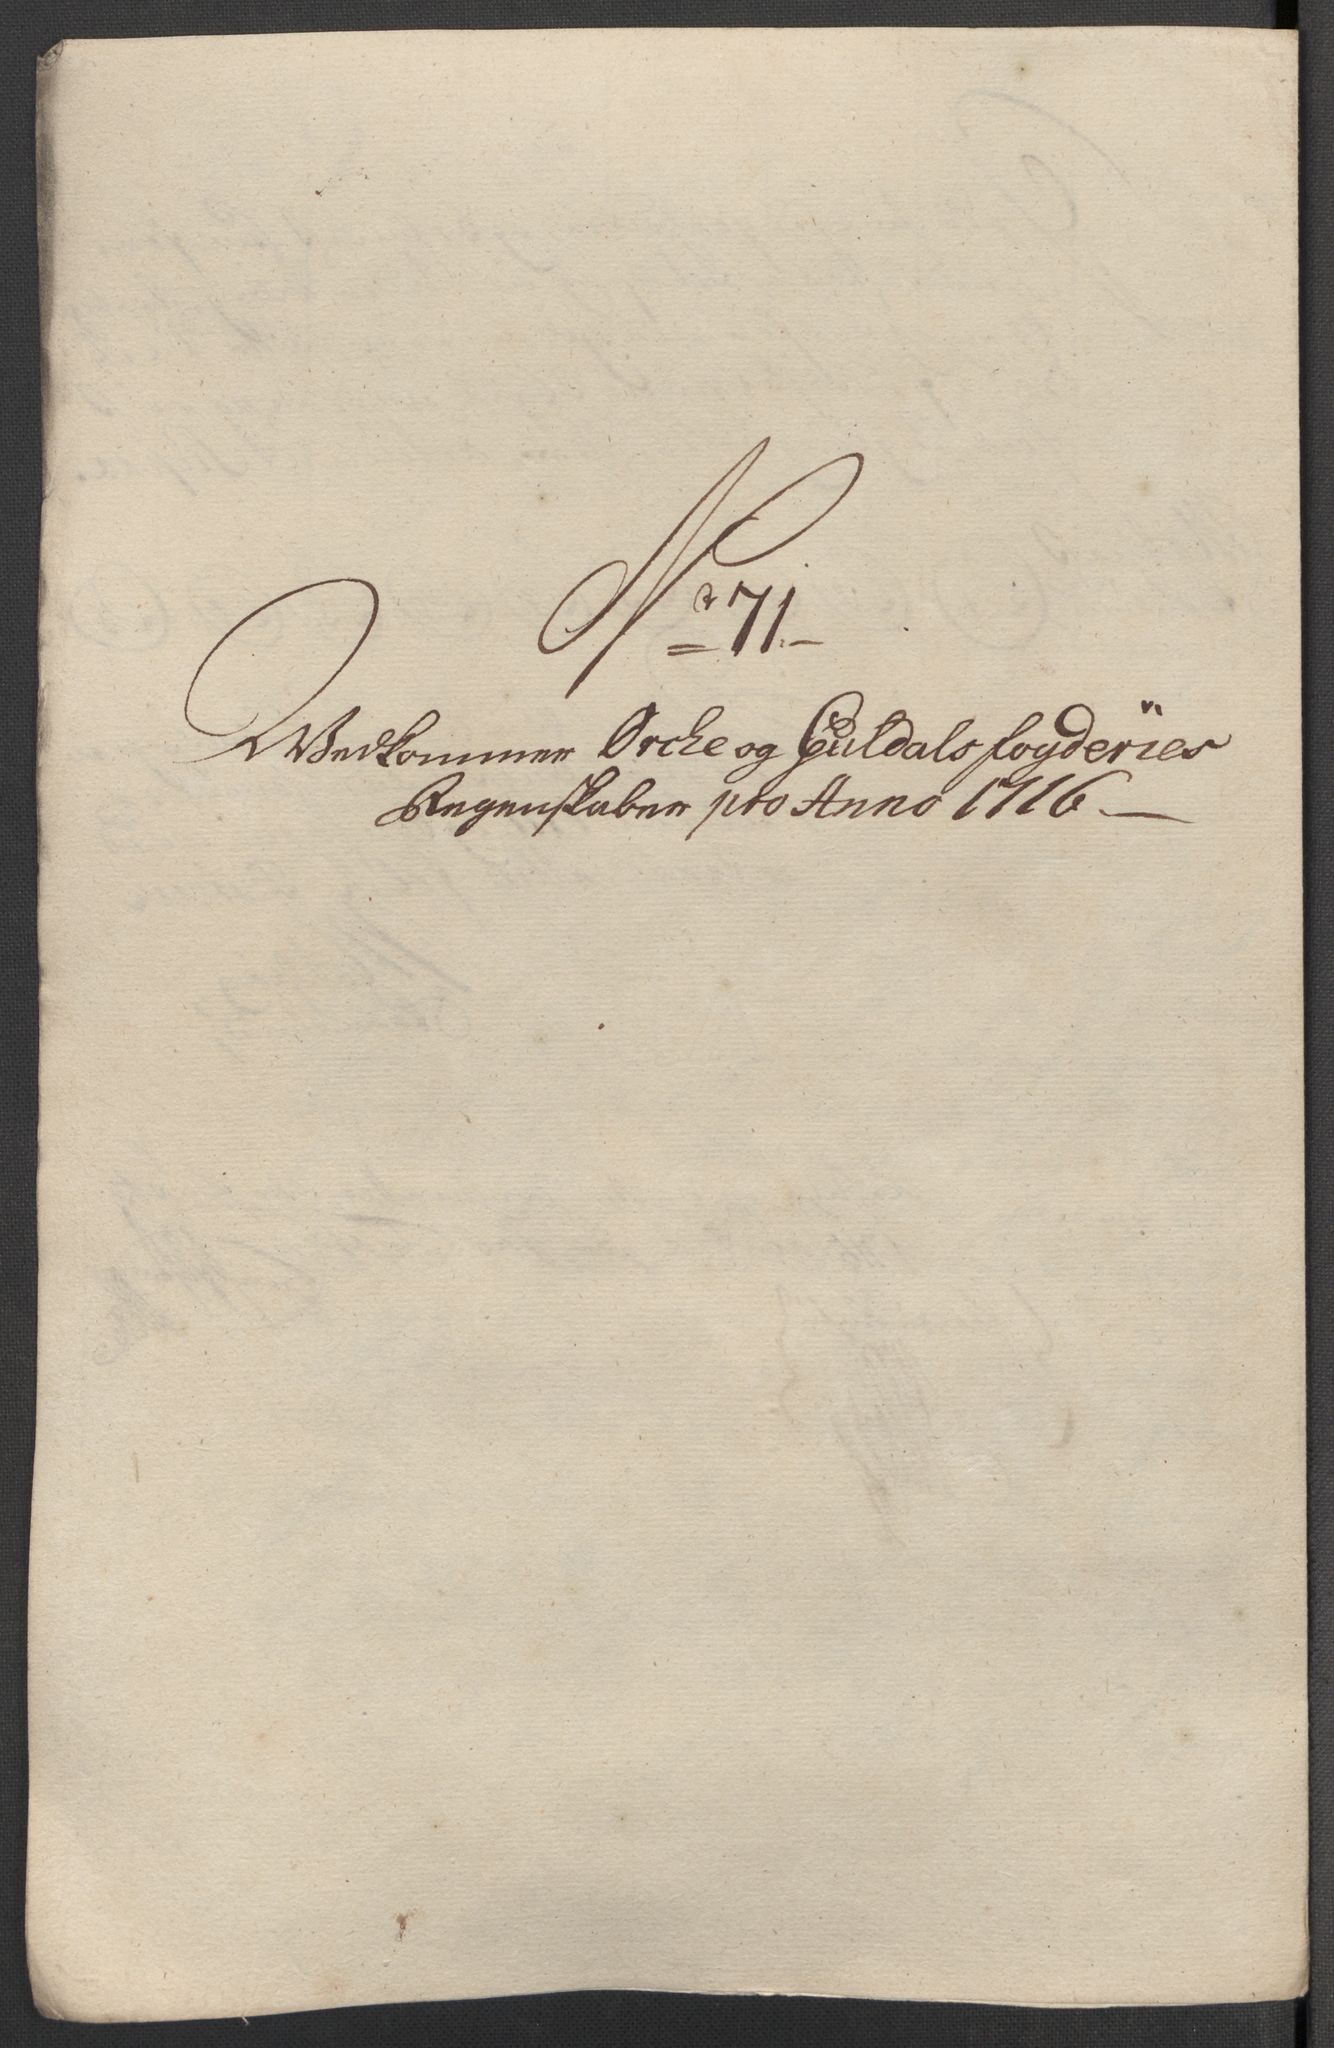 Nr 71.
Vedkommer Orche og Guldals fogderies
Regenskaber pro Anno 1716